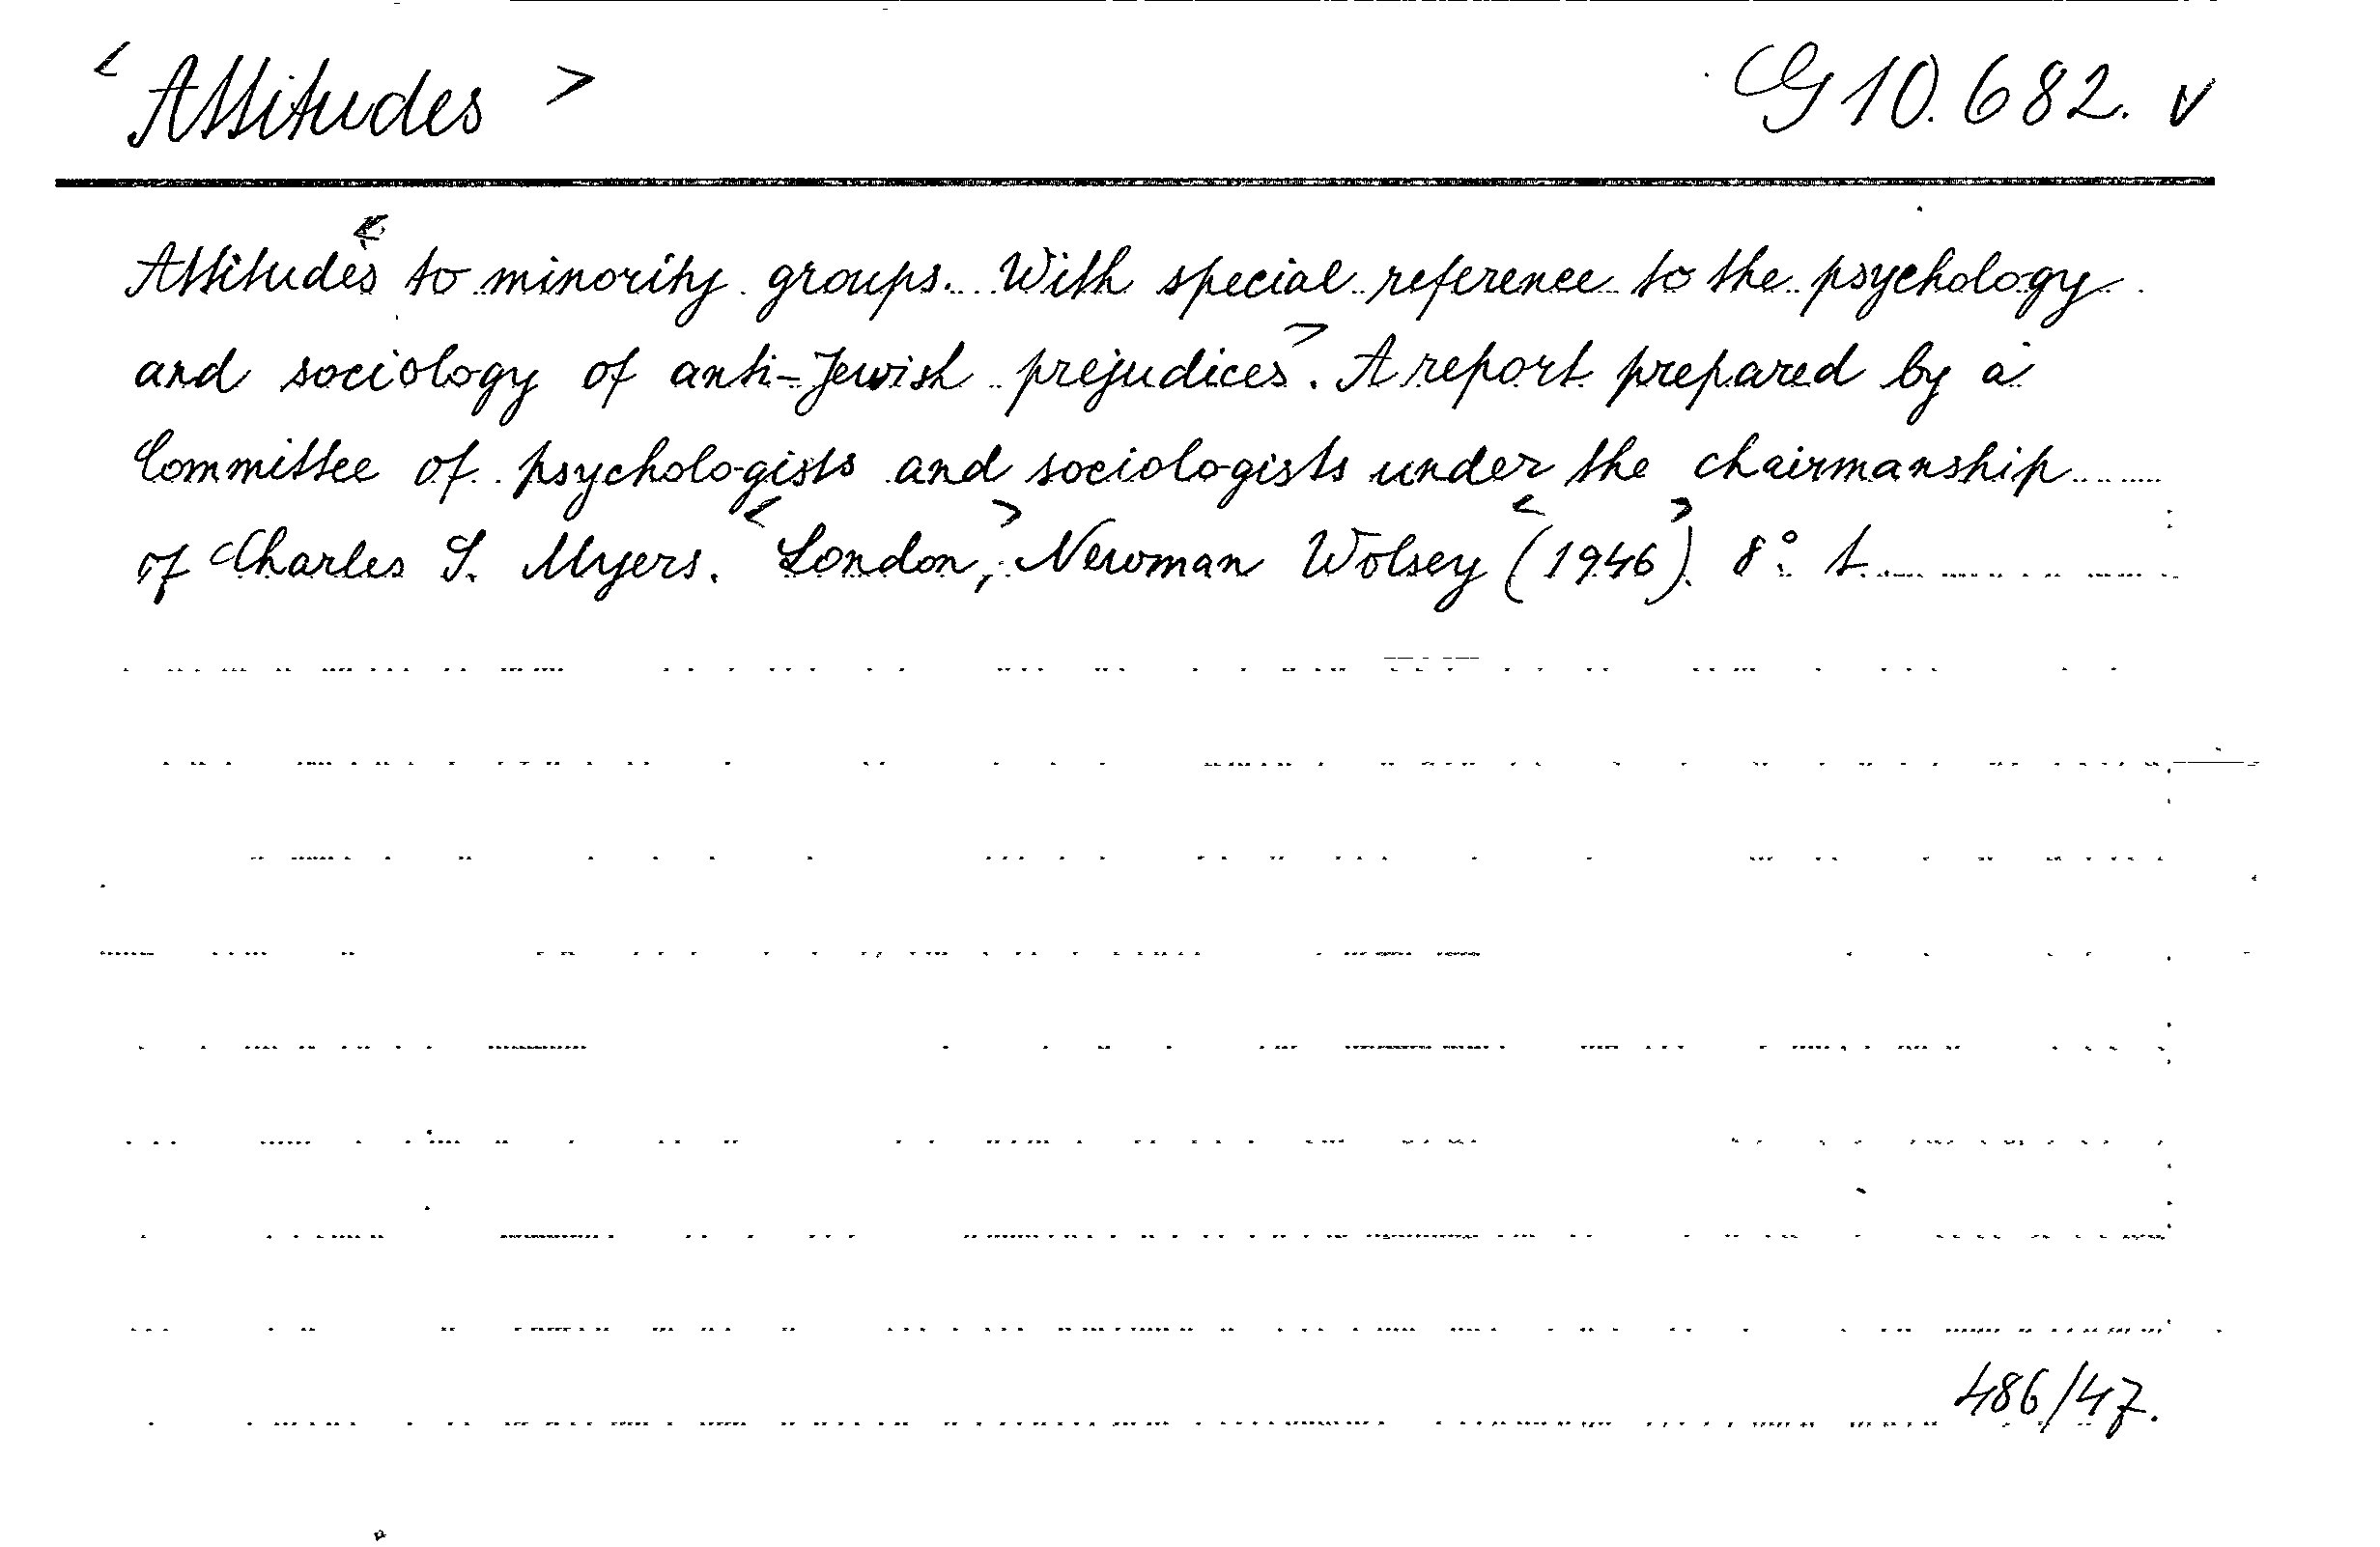 < Attitudes > G 10.682. v
Attitudes to minority groups. With special reference to the psychology
and sociology of anti-Jewish prejudices>. A report prepared by a
Committee of psychologists and sociologists under the chairmanship
of Charles S. Myers. <London,> Newman Wolsey (<1946>). 8° t.
486/47.